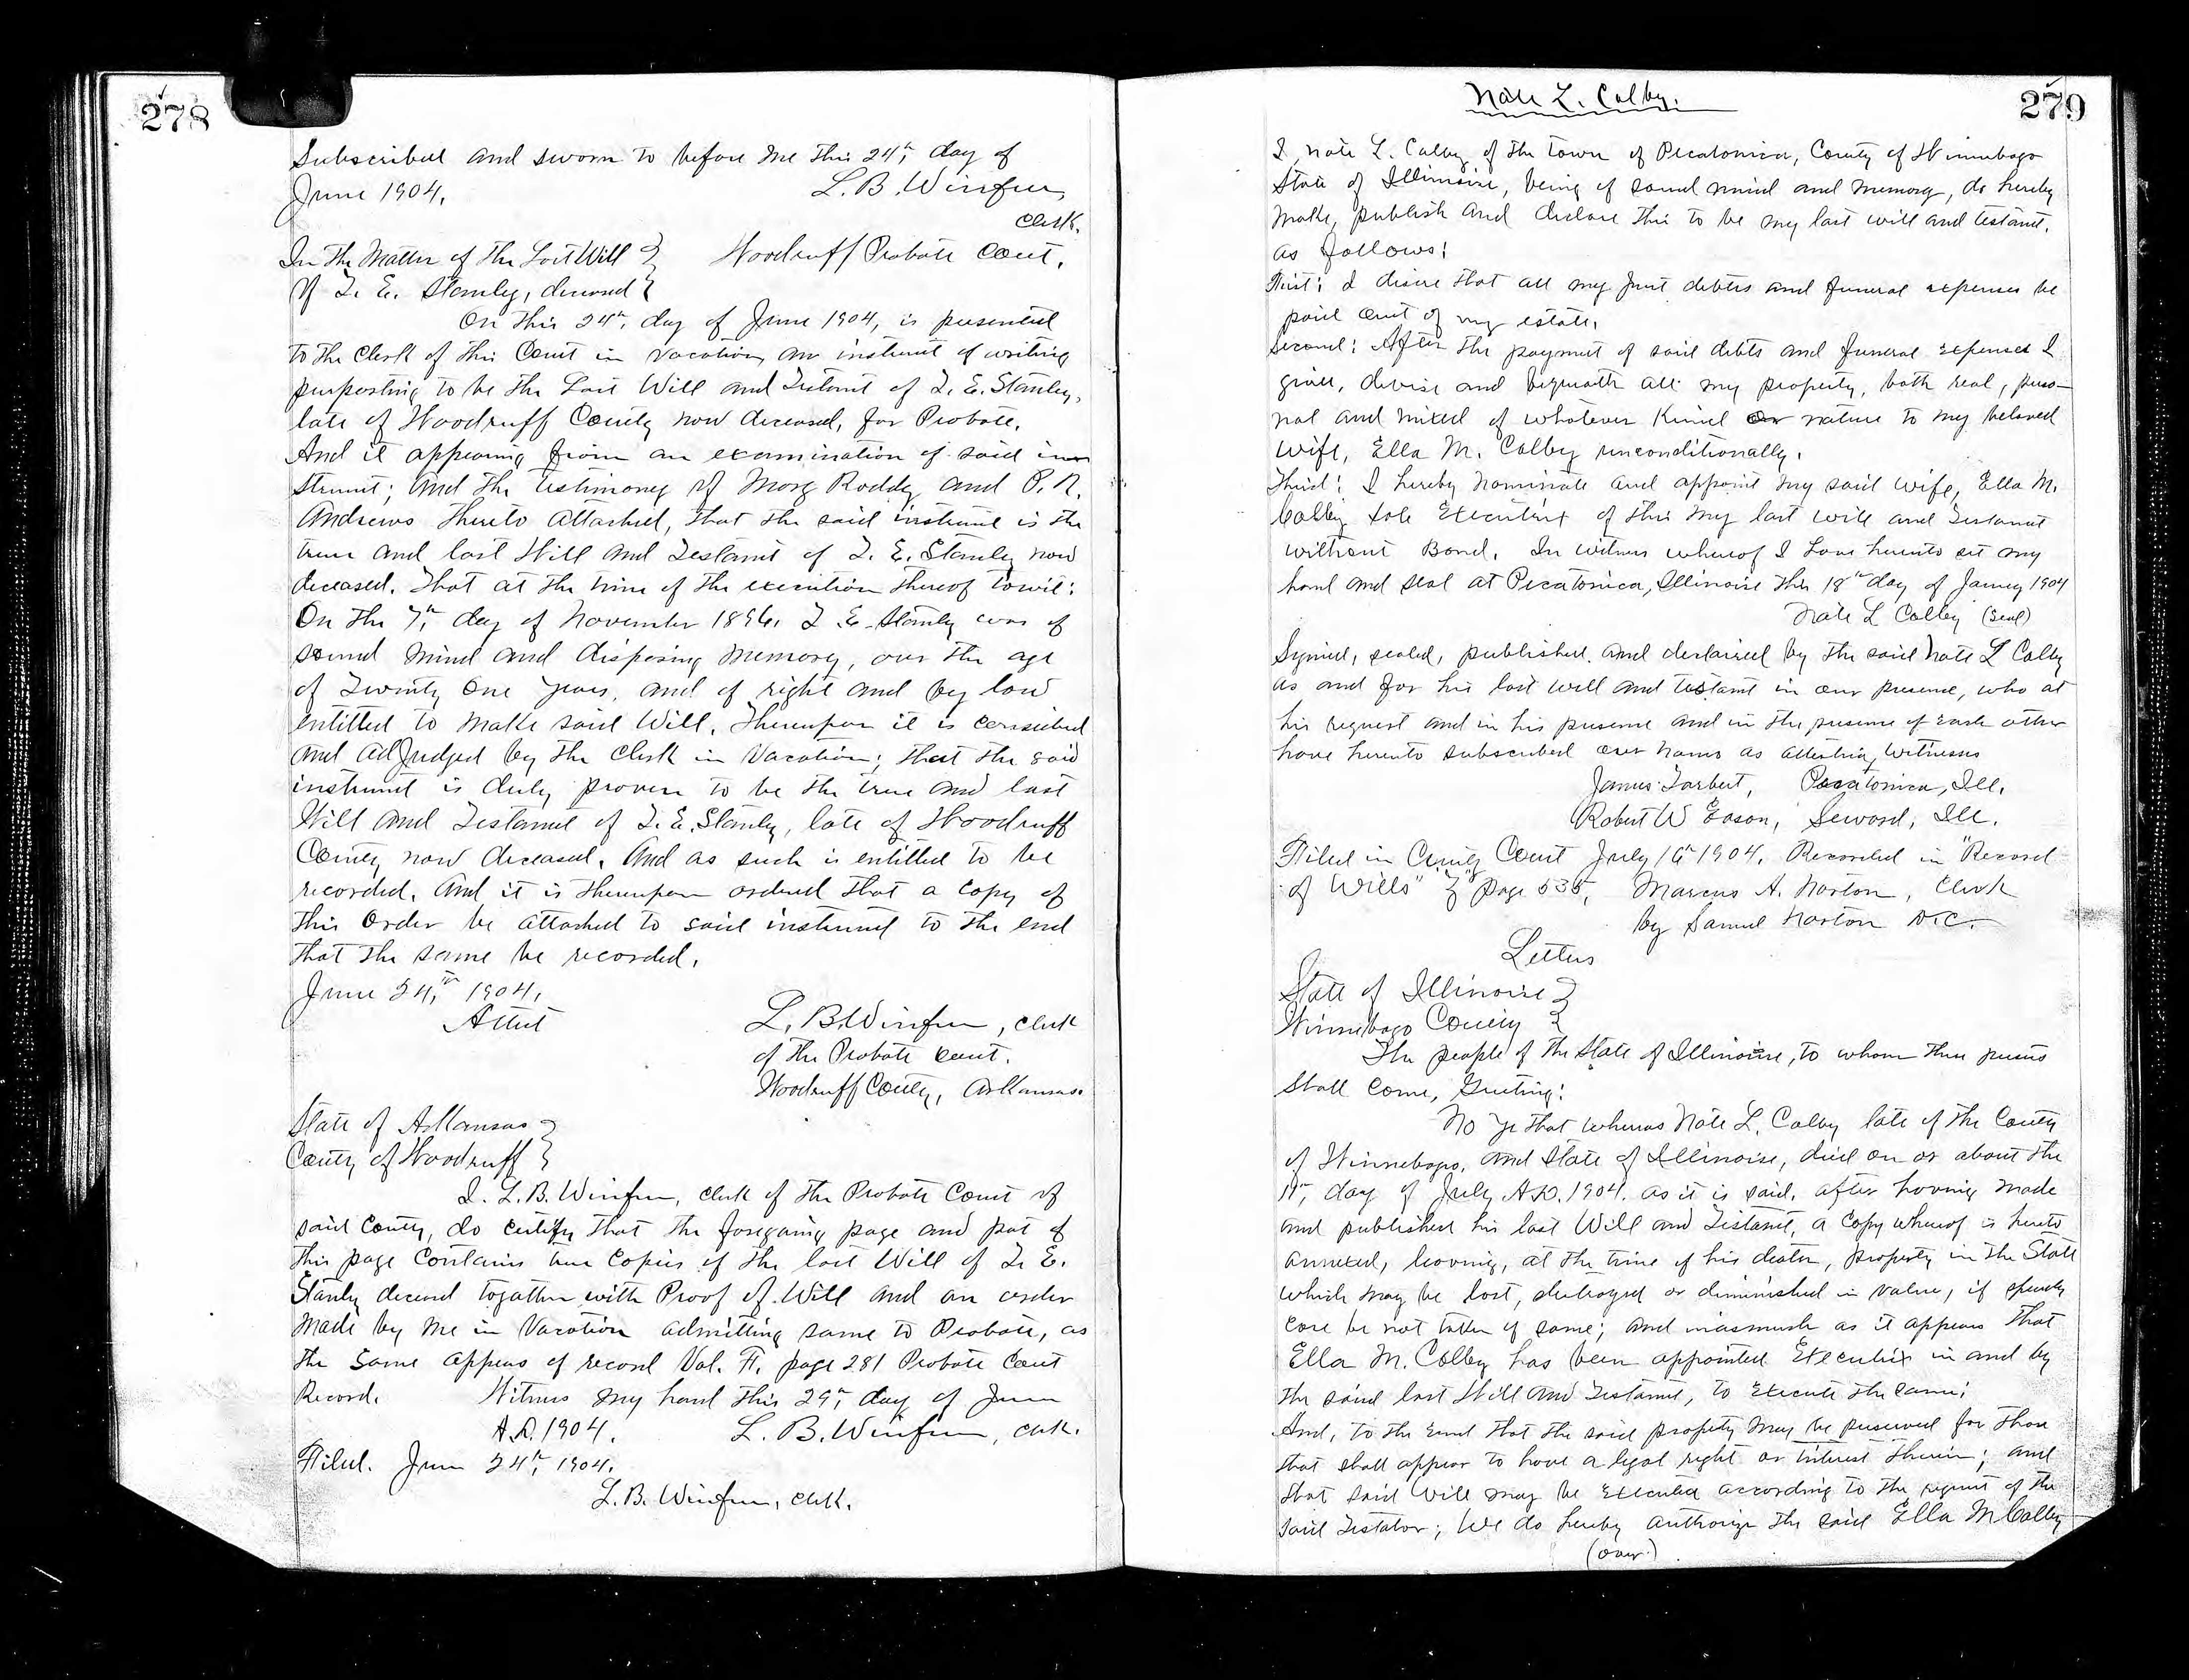 278
Subscribed and sworn to before me this 24th day of
June 1904. L. B. Winfrey,
Clerk.
In The Matter of The Last Will } Woodruff Probate Court.
Of T. E. Stanley, deceased }
On this 24th day of June 1904, is presented
to the Clerk of this Court in vacation, an instrument of writing
purporting to be the Last Will and Testament of T. E. Stanley,
late of Woodruff County now deceased, for Probate.
And it appearing from an examination of said in-
strument; and the testimony of Morg Roddy and P. R.
Andrews thereto attached, that the said instrument is the
true and last Will and Testament of T. E. Stanley now
deceased. That at the time of the execution thereof towit:
On the 7th day of November 1896. T. E. Stanley was of
sound mind and disposing memory, over the age
of Twenty One years, and of right and by law
entitled to make said Will. Thereupon it is considered
and adjudged by the Clerk in Vacation; that the said
instrument is duly proven to be the true and last
Will and Testament of T. E. Stanley, late of Woodruff
County now deceased. And as such is entitled to be
recorded. And it is thereupon ordered that a copy of
this Order be attached to said instrument to the end
that the same be recorded.
June 24th, 1904.
Attest L. B. Winfrey, Clerk
of the Probate Court.
Woodruff County, Arkansas.
State of Arkansas }
County of Woodruff }
I. L. B. Winfrey, Clerk of the Probate Court of
said County, do certify that the foregoing page and part of
this page contains true copies of the last Will of T. E.
Stanley deceased togather with Proof of Will and an order
made by me in Vacation admitting same to Probate, as
the same appears of record Vol. F. page 281 Probate Court
Record. Witness my hand this 29th day of June
A.D. 1904. L. B. Winfrey, Clerk.
Filed. June 24th, 1904.
L. B. Winfrey, Clerk.
Nate L. Colby.
279
I, Nate L. Colby of the Town of Pecatonica, County of Winnebago
State of Illinoise, being of sound mind and memory, do hereby
make, publish and declare this to be my last will and testament.
as follows:
First: I desire that all my just debts and funeral expenses be
paid out of my estate.
Second: After the payment of said debts and funeral expenses I
give, devise and bequeath all my property, both real, perso-
nal and mixed of whatever kind or nature to my beloved
wife, Ella M. Colby unconditionally.
Third: I hereby nominate and appoint my said wife, Ella M.
Colby sole Executrix of this my last will and Testament
without Bond. In witness whereof I have hereunto set my
hand and seal at Pecatonica, Illinoise this 18th day of January 1904
Nate L Colby (Seal)
Signed, sealed, published and declaired by the said Nate L Colby
as and for his last will and testament in our presence, who at
his request and in his presence and in the presence of each other
have hereunto subscribed our names as attesting witnesses
James Tarbert, Pecatonica, Ill.
Robert W Eason, Seward, Ill.
Filed in County Court July 16th 1904. Recorded in "Record
of Wills" page 535, Marcus A. Norton, Clerk
by Samuel Norton D.C.
Letters
State of Illinoise }
Winnebago County }
The people of the State of Illinoise, to whom these presents
Shall Come, Greeting:
No ye that whereas Nate L. Colby late of the County
of Winnebago, and State of Illinoise, died on or about the
11th, day of July A.D. 1904. as it is said, after having made
and published his last Will and Testament, a copy whereof is hereto
annexed, leaving, at the time of his death, property in the State
which may be lost, destroyed or diminished in value, if speedy
care be not taken of same; and inasmuch as it appears that
Ella M. Colby has been appointed Executrix in and by
the said last Will and Testament, to execute the same;
And, to the end that the said property may be preserved for those
that shall appear to have a legal right or interest therein; and
that said Will may be executed according to the request of the
said Testator; We do hereby authorize the said Ella M Colby
(over)